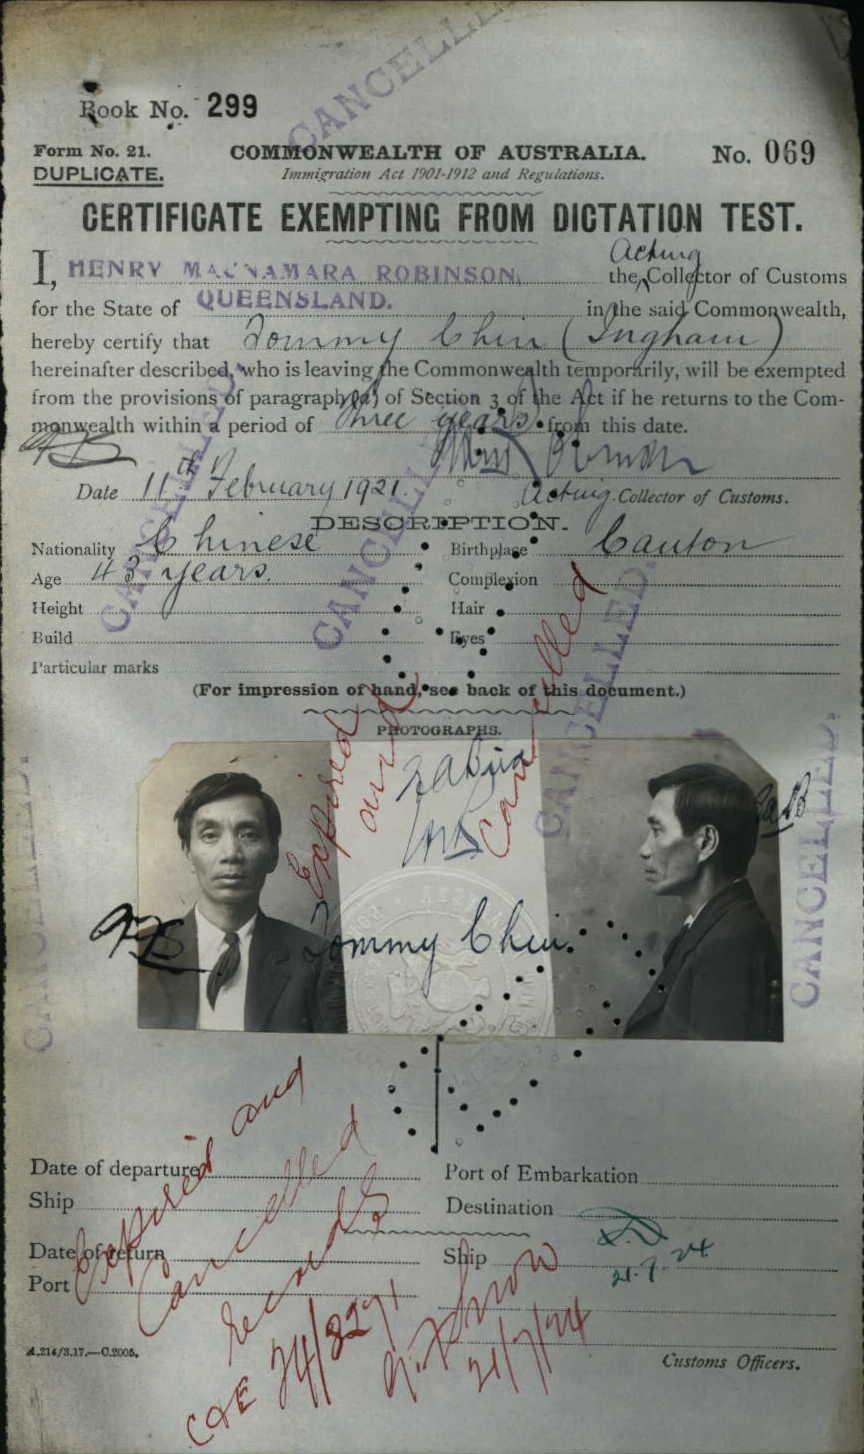 CANCELLED.
Book No. 299
Form No. 21.
DUPLICATE.
COMMONWEALTH OF AUSTRALIA.
Immigration Act 1901-1912 and Regulations.
No. 069
CERTIFICATE EXEMPTING FROM DICTATION TEST.
Acting
I, HENRY MACNAMARA ROBINSON, the Collector of Customs
for the State of QUEENSLAND. in the said Commonwealth,
hereby certify that Tommy Chin (Ingham)
hereinafter described, who is leaving the Commonwealth temporarily, will be exempted
from the provisions of paragraph (a) of Section 3 of the Act if he returns to the Com-
monwealth within a period of three years from this date.
Date 11th February 1921. Acting Collector of Customs.
DESCRIPTION.
Nationality Chinese Birthplace Canton
Age 43 years. Complexion
Height Hair
Build Eyes
Particular marks
CANCELLED.
CANCELLED.
CANCELLED.
(For impression of hand, see back of this document.)
PHOTOGRAPHS.
Expired and cancelled
Tommy Chin.
CANCELLED.
CANCELLED.
CANCELLED.
Date of departure Port of Embarkation
Ship Destination
Date of return Ship
Port
Expired and
Cancelled
records
C&E 24/8271
21/7/24
21.7.24
A.214/3.17.—C.2005.
Customs Officers.